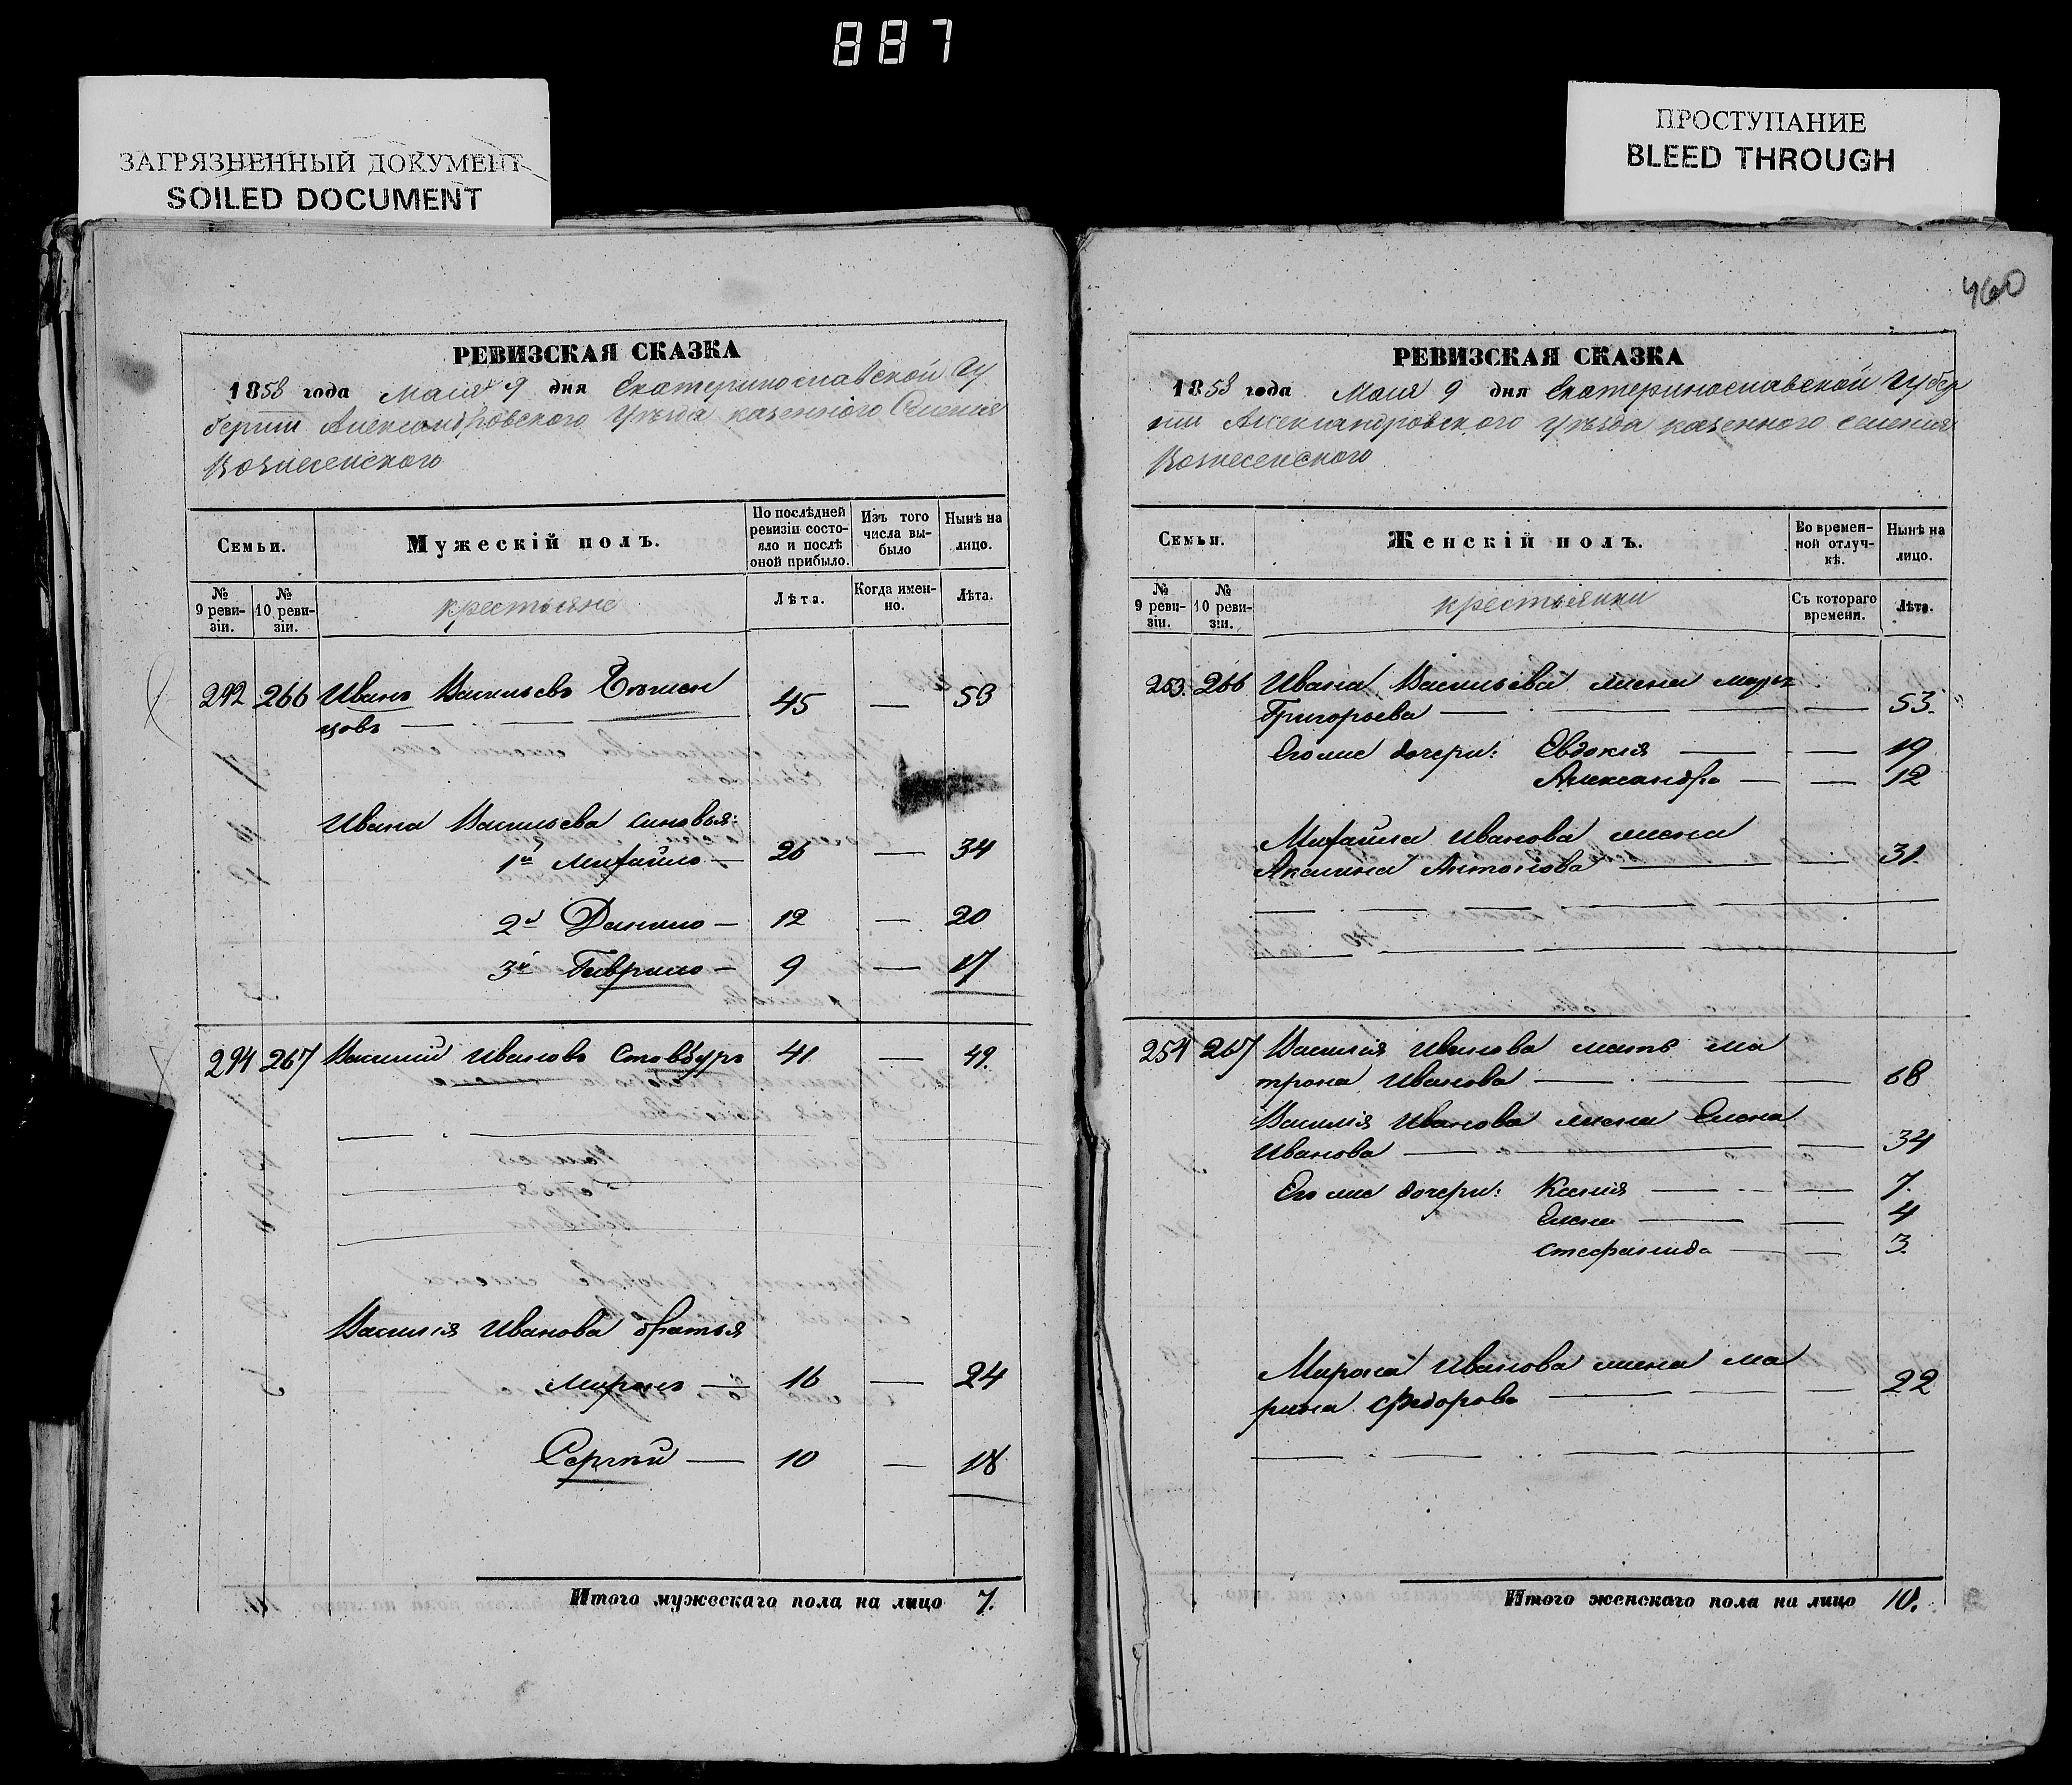 887
ЗАГРЯЗНЕННЫЙ ДОКУМЕНТ
SOILED DOCUMENT
ПРОСТУПАНИЕ
BLEED THROUGH
РЕВИЗСКАЯ СКАЗКА
1858 года Маия 9 дня Екатеринославской Гу
берніи Александровского Уѣзда казенного Селенія
Вознесенского
Семьи.
Мужескій полъ.
По послѣдней ревизіи состояло и послѣ оной прибыло.
Изъ того числа выбыло
Нынѣ на лицо.
№ 9 ревизіи.
№ 10 ревизіи.
крестьяне
Лѣта.
Когда именно.
Лѣта.
292 266 Иванъ Васильевъ
цовъ — 45 — 53
Ивана Васильева сыновья:
1й Михайло — 26 — 34
2й Данило — 12 — 20
3й Гаврило — 9 — 17
294 267 Василий Ивановъ Стовбуръ 41 — 49.
Василія Иванова братья
Миронъ — 16 — 24
Сергѣй — 10 — 18
Итого мужескаго пола на лицо 7.
460
РЕВИЗСКАЯ СКАЗКА
1858 года Маия 9 дня Екатеринославской Губер
ніи Александровского Уѣзда казенного селения
Вознесенского
Семьи.
Женскій полъ.
Во временной отлучкѣ.
Нынѣ на лицо.
№ 9 ревизіи.
№ 10 ревизіи.
крестьянки
Съ котораго времени.
Лѣта.
253. 266 Ивана Васильева жена
Григорьева — — 53.
Его же дочери: Евдокія — — 19
Александра — — 12
Михайла Иванова жена
Акилина Антонова — — 31.
254 267 Василія Иванова мать Ма
трона Иванова — — 68
Василія Иванова жена Елена
Иванова — — 34
Его же дочери: Ксенія — — 7.
Елена — — 4
Стефанида — — 3.
Мирона Иванова жена Ма
рина Федорова — — 22
Итого женскаго пола на лицо 10.